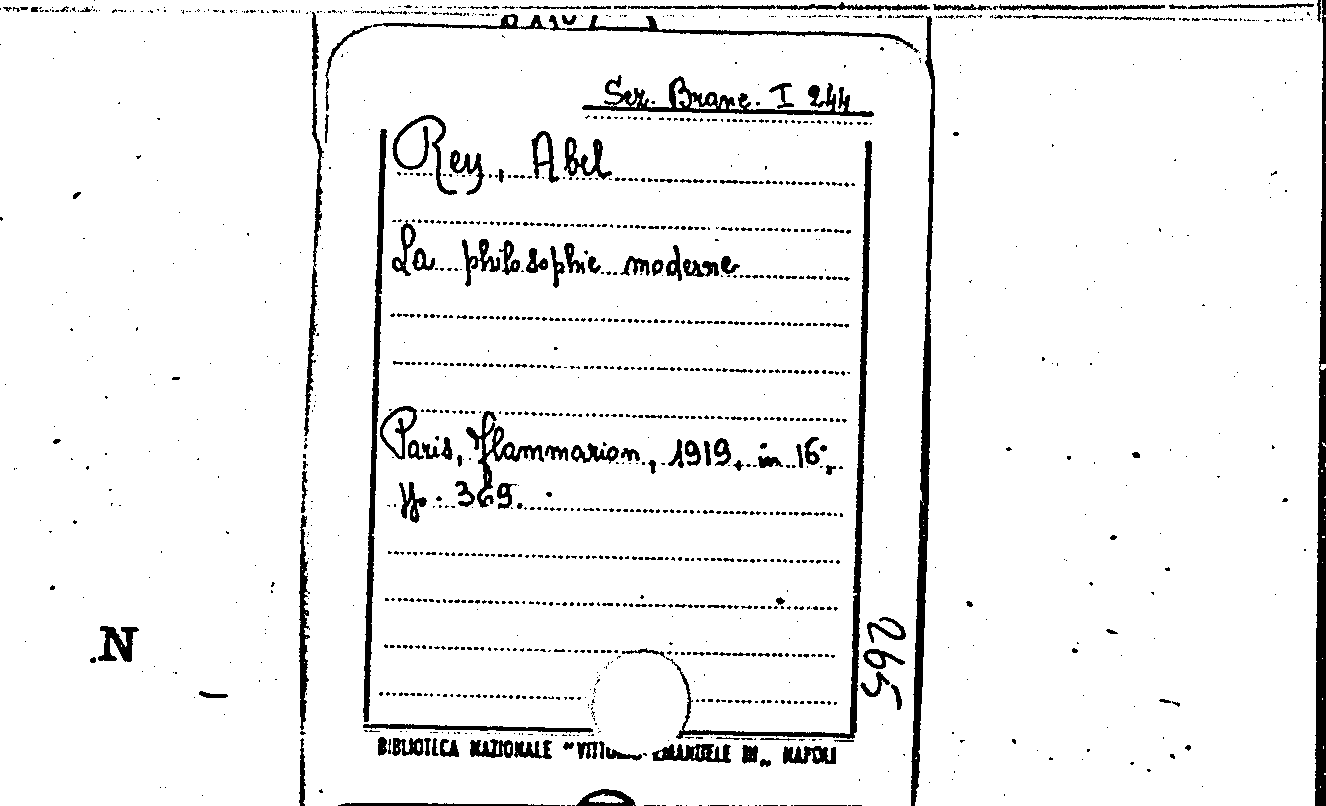 Sez. Branc. I 244
Rey, Abel
La philosophie moderne
Paris, Flammarion, 1919, in 16°,
p. 369.
265
N
BIBLIOTECA NAZIONALE "VITTORIO EMANUELE III„ NAPOLI